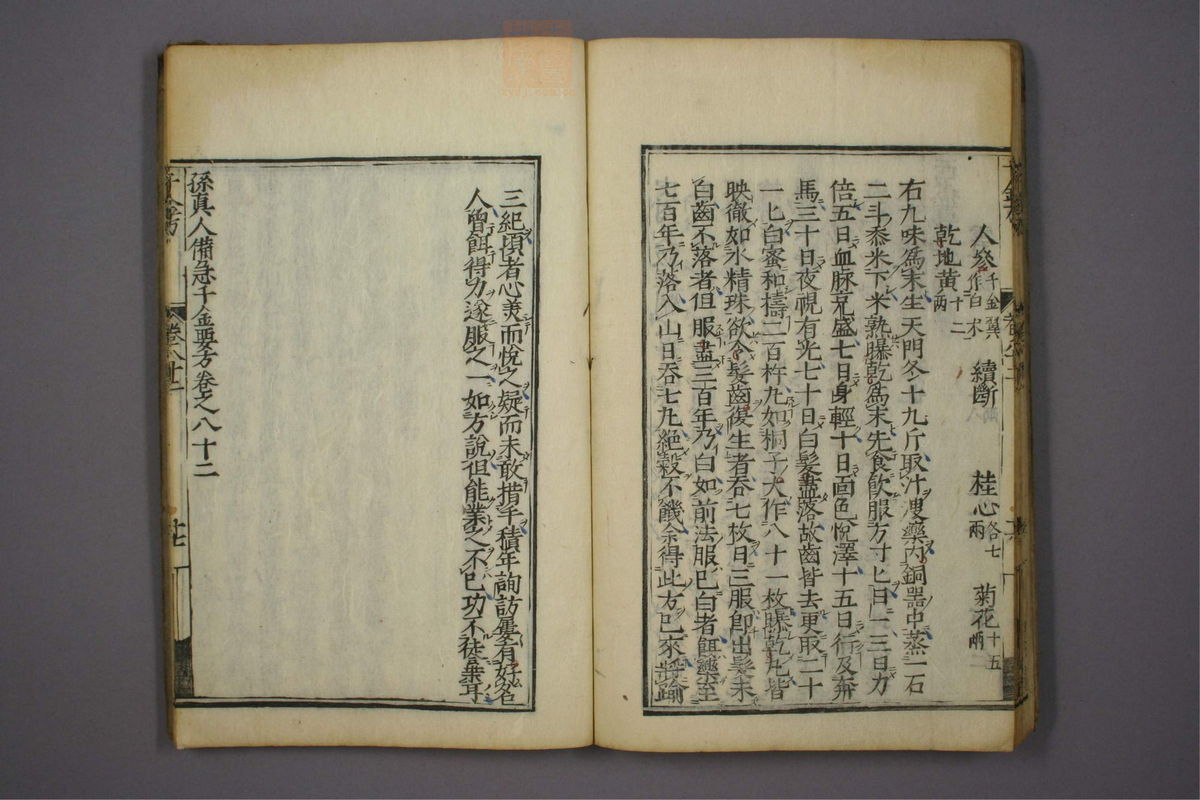 人參千金翼作白朮 續斷 桂心各七兩 菊花十五兩
乾地黃十二兩
右九味爲末生天門冬十九斤取汁溲藥內銅器中蒸一石
二斗黍米下米熟曝乾爲末先食飲服方寸匕日三三日力
倍五日血脉充盛七日身輕十日面色悅澤十五日行及奔
馬三十日夜視有光七十日白髮盡落故齒皆去更取二十
一匕白蜜和擣二百杵丸如桐子大作八十一枚曝乾丸皆
映徹如水精珠欲令髮齒復生者吞七枚日三服即出髮未
白齒不落者但服盡三百年乃白如前法服已白者餌藥至
七百年乃落入山日吞七丸絕穀不饑余得此方已來將踰
三紀頃者心羨而悅之疑而未敢措手積年詢訪屢有好名
人曾餌得力遂服之一如方說但能業之不已功不徒棄耳
孫真人備急千金要方卷之八十二